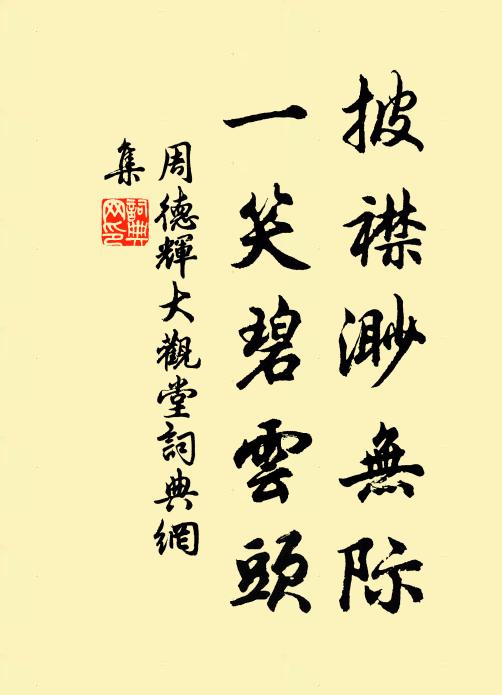 披襟渺無际
一笑碧雲頭
周德輝大觀堂詞典網
集
詞典
网印